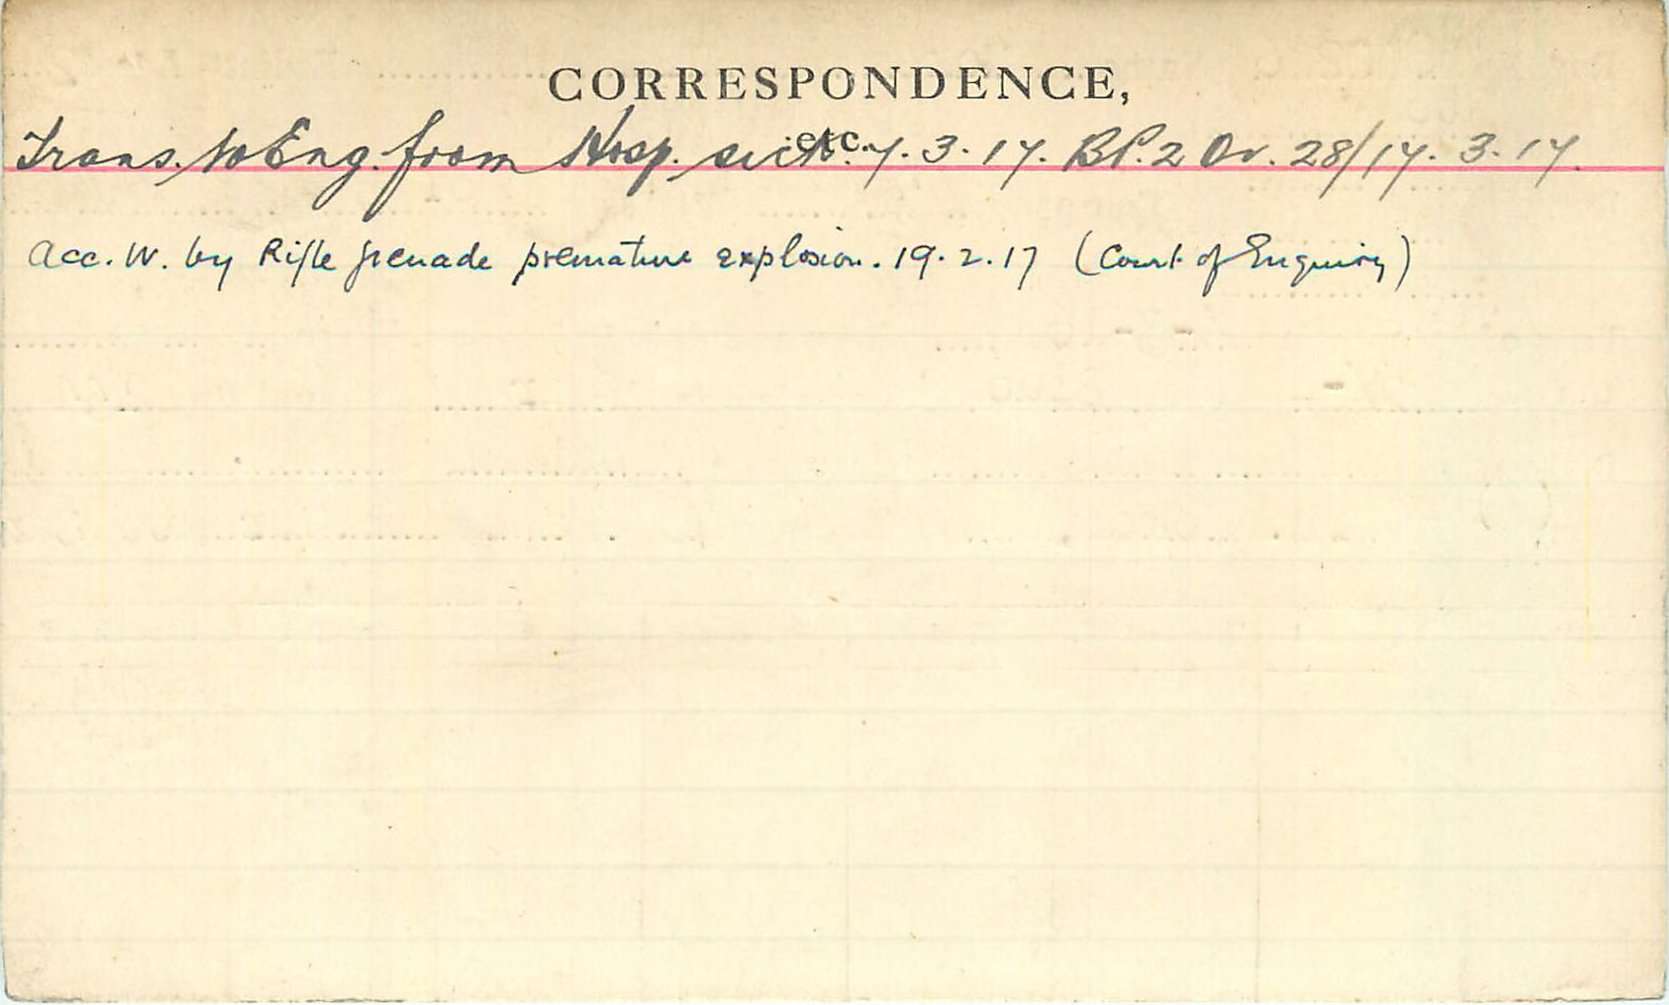 CORRESPONDENCE,
etc.
Trans. to Eng. from Hosp. sick. 7. 3. 17. BP. 2 Or. 28/17. 3. 17.
Acc. W. by Rifle grenade premature explosion. 19. 2. 17 (Court of Enquiry)